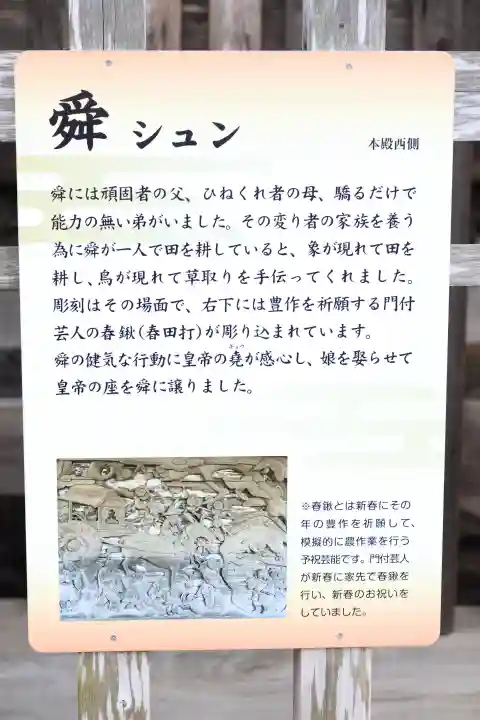 舜 シュン
本殿西側
舜には頑固者の父、ひねくれ者の母、驕るだけで
能力の無い弟がいました。その変り者の家族を養う
為に舜が一人で田を耕していると、象が現れて田を
耕し、鳥が現れて草取りを手伝ってくれました。
彫刻はその場面で、右下には豊作を祈願する門付
芸人の春鍬(春田打)が彫り込まれています。
舜の健気な行動に皇帝の堯が感心し、娘を娶らせて
皇帝の座を舜に譲りました。
※春鍬とは新春にその
年の豊作を祈願して、
模擬的に農作業を行う
予祝芸能です。門付芸人
が新春に家先で春鍬を
行い、新春のお祝いを
していました。